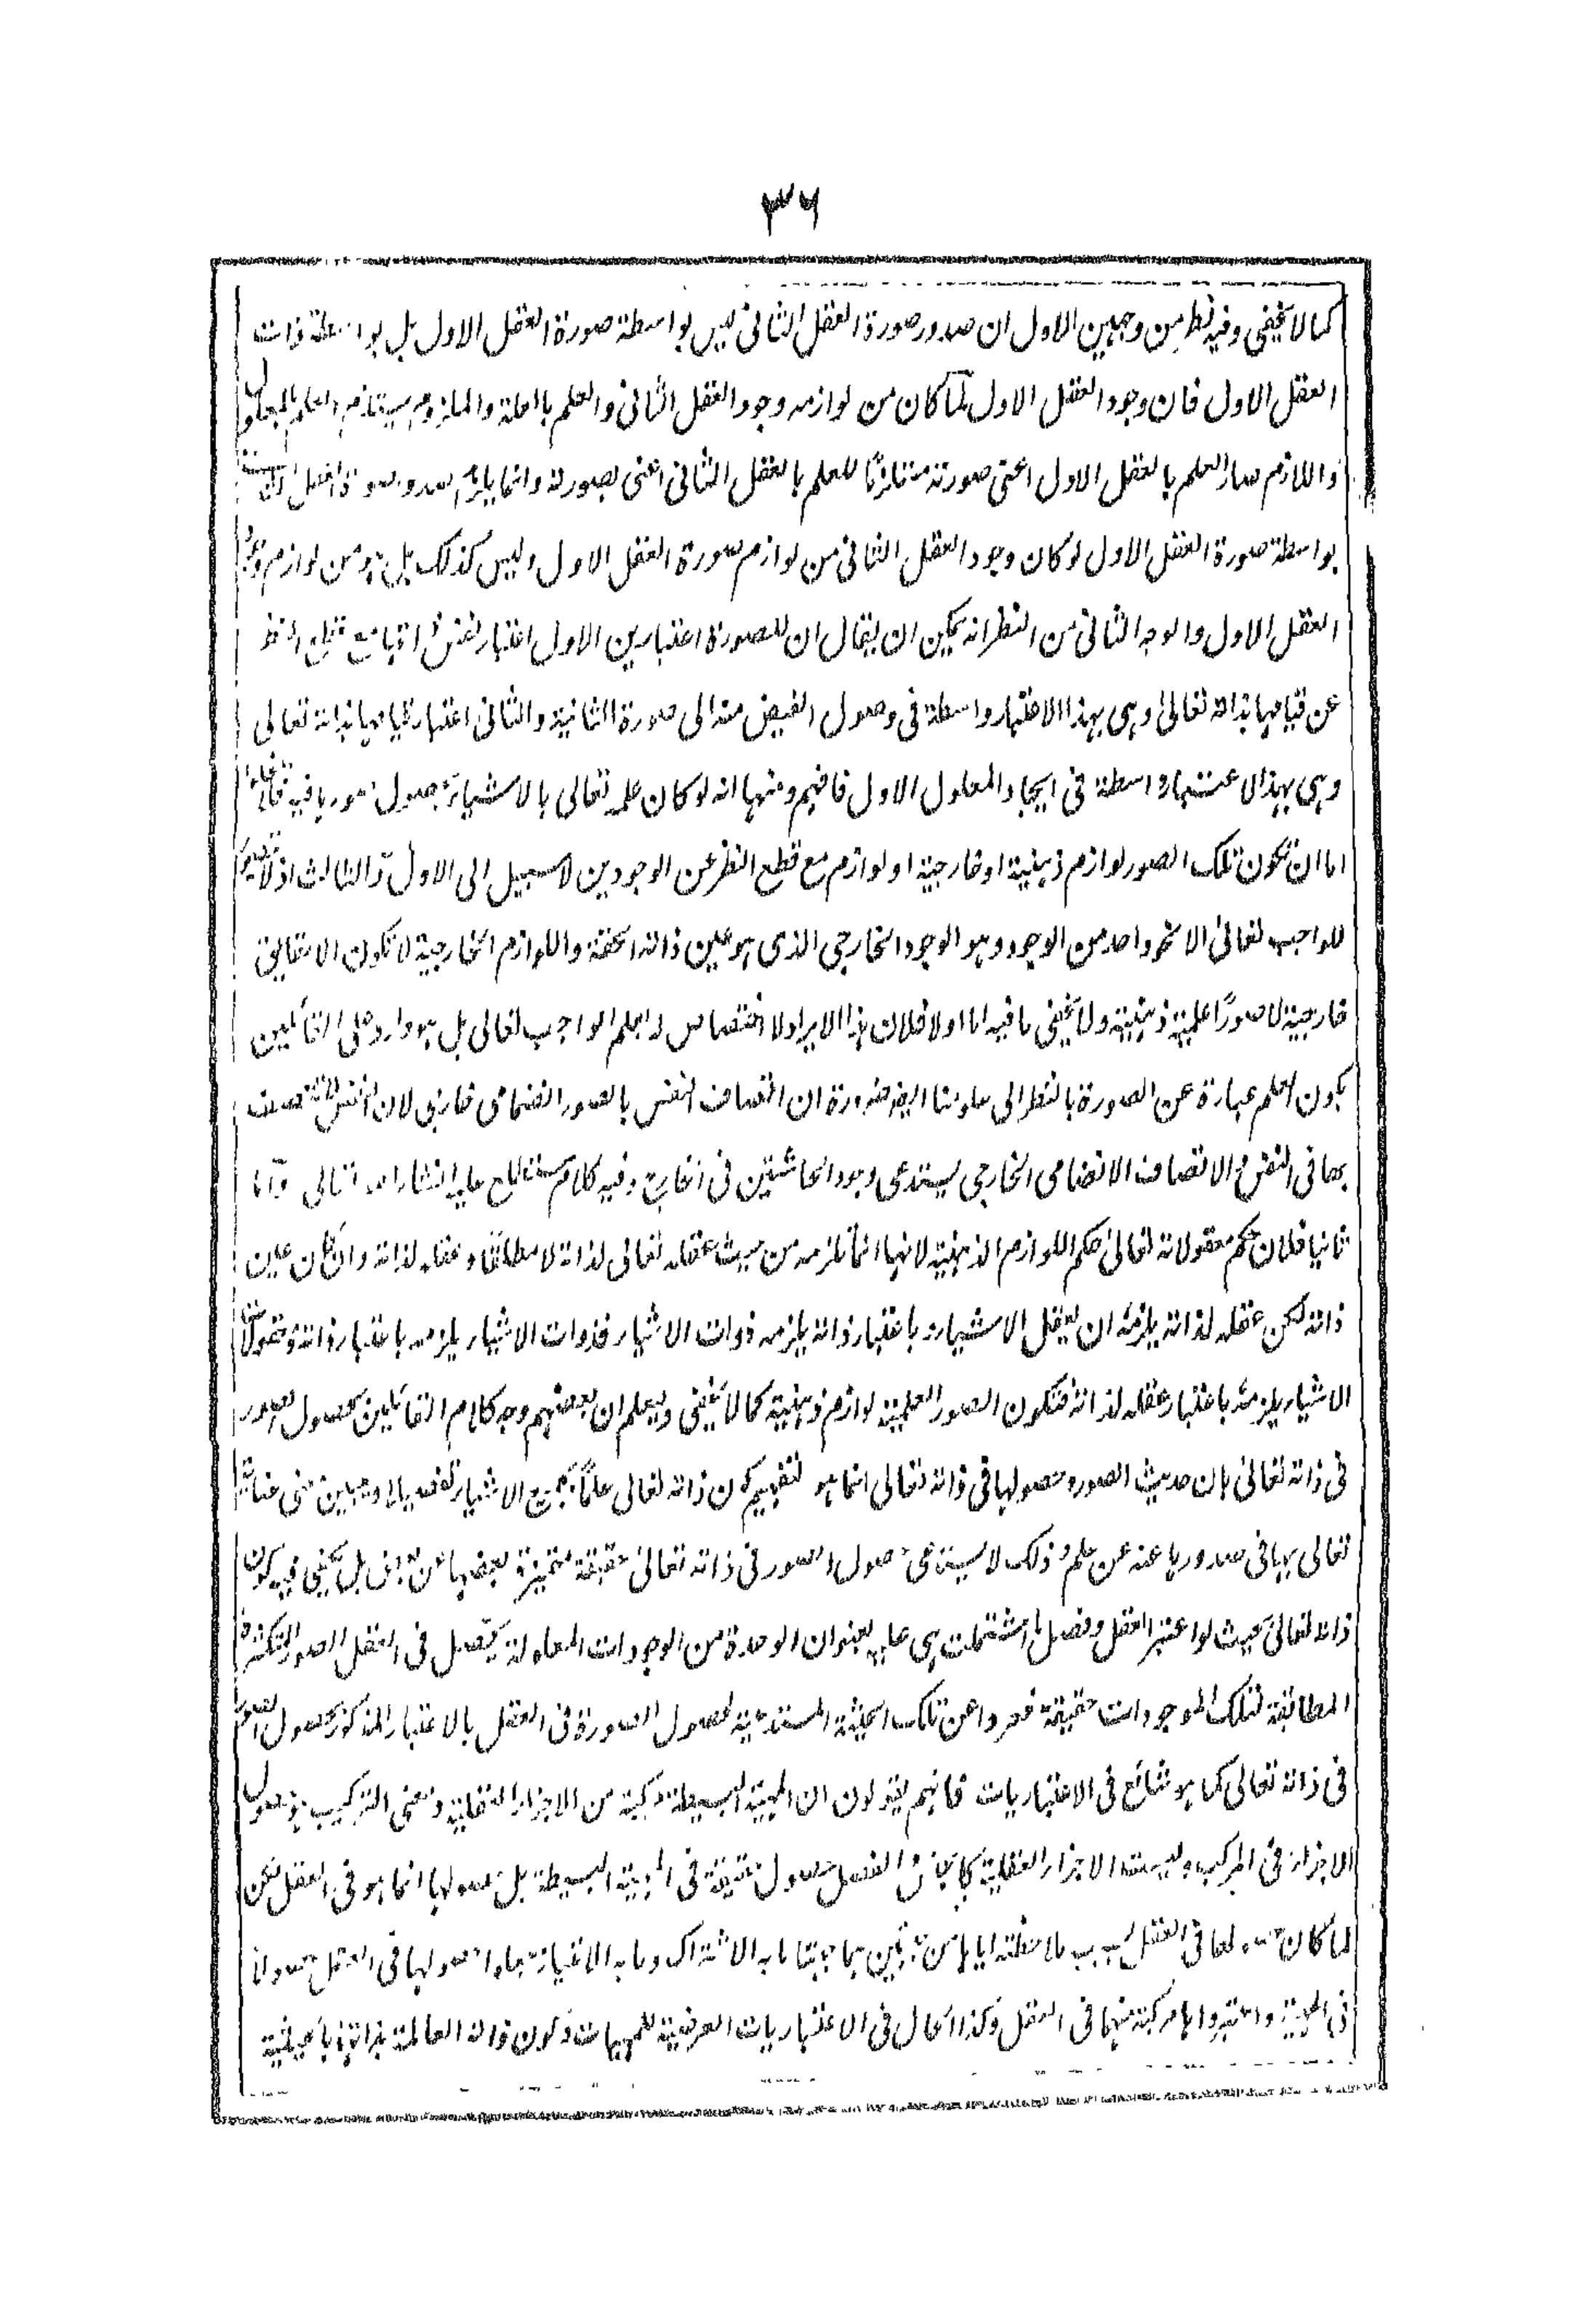 ۳۶
كما لا يخفى وفيه نظر من وجهين الاول ان صدور صورة العقل الثانى ليس بواسطة صورة العقل الاول بل بواسطة ذات
العقل الاول فان وجود العقل الاول لما كان من لوازمه وجود العقل الثانى والعلم بالعلة والملزوم يستلزم العلم بالمعلول
واللازم صار العلم بالعقل الاول اعنى صورته مستلزمًا للعلم بالعقل الثانى اعنى بصورته وانما يلزم صدور صورة العقل الثانى
بواسطة صورة العقل الاول لو كان وجود العقل الثانى من لوازم صورة العقل الاول وليس كذلك بل هو من لوازم وجود
العقل الاول والوجه الثانى من النظر انه يمكن ان يقال ان للصورة اعتبارين الاول اعتبار نفس ذاتها مع قطع النظر
عن قيامها بذاته تعالى وهى بهذا الاعتبار واسطة فى وصول الفيض منه الى صورة الثانية والثانى اعتبار قيامها بذاته تعالى
وهى بهذا الاعتبار واسطة فى ايجاد المعلول الاول فافهم ومنها انه لو كان علمه تعالى بالاشياء بحصول صورها فيه تعالى
اما ان تكون تلك الصور لوازم ذهنية او خارجية او لوازم مع قطع النظر عن الوجودين لا سبيل الى الاول والثالث اذ لا
للواجب تعالى الا نحو واحد من الوجود وهو الوجود الخارجى الذى هو عين ذاته الحقة واللوازم الخارجية لا تكون الا حقائق
خارجية لا صورًا علمية ذهنية ولا يخفى ما فيه اما اولا فلان هذا الايراد لا اختصاص له بعلم الواجب تعالى بل هو وارد على القائلين
بكون العلم عبارة عن الصورة بالنظر الى علومنا ايضا ضرورة ان اتصاف النفس بالصور انضمامى خارجى لان النفس
بها فى النفس والاتصاف الانضمامى الخارجى يستدعى وجود الحاشيتين فى الخارج وفيه كلام ستطلع عليه انشاء الله تعالى واما
ثانيا فلان حكم معقولاته تعالى حكم اللوازم الذهنية لانها انما تلزمه من حيث عقله تعالى لذاته لا مطلقًا وعقله لذاته وان كان عين
ذاته لكن عقله لذاته يلزمه ان يعقل الاشياء وباعتبار ذاته يلزمه ذوات الاشياء فذوات الاشياء يلزمه باعتبار ذاته ومعقولات
الاشياء يلزمه باعتبار عقله لذاته فتكون الصور العلمية لوازم ذهنية كما لا يخفى وليعلم ان بعضهم وجه كلام القائلين بحصول الصور
فى ذاته تعالى بان حديث الصور وحصولها فى ذاته تعالى انما هو لتفهيم كون ذاته تعالى علمًا بجميع الاشياء
تعالى بها فى صدورها عنه عن علم وذلك لا يستدعى حصول الصور فى ذاته تعالى حقيقة متميزة بعضها عن بعض بل يكفى فيه كون
ذاته تعالى بحيث لو اعتبر العقل وفصل ما اشتملت هى عليه بعنوان الوحدة من الوجودات المعلولة يحصل فى العقل الصور المتكثرة
المطابقة لتلك الموجودات حقيقة فعبروا عن تلك الحيثية المستدعية لحصول الصورة فى العقل بالاعتبار المذكور بحصول الصور
فى ذاته تعالى كما هو شائع فى الاعتباريات فانهم يقولون ان المهية البسيطة مركبة من الاجزاء العقلية ومعنى التركيب حصول
الاجزاء فى المركب وليست الاجزاء العقلية كالجنس والفصل حصول حقيقة فى المهية البسيطة بل حصولها انما هو فى العقل لكن
لما كان حصولها فى العقل بسبب ملاحظته اياها من ما به الاشتراك وما به الامتياز جعلوا حصولها فى العقل حصولا
فى المهية واعتبروا انها مركبة منهما فى العقل وكذا الحال فى الاعتباريات العرضية للمهيات فكون ذاته العالمة بذاتها بحيثية